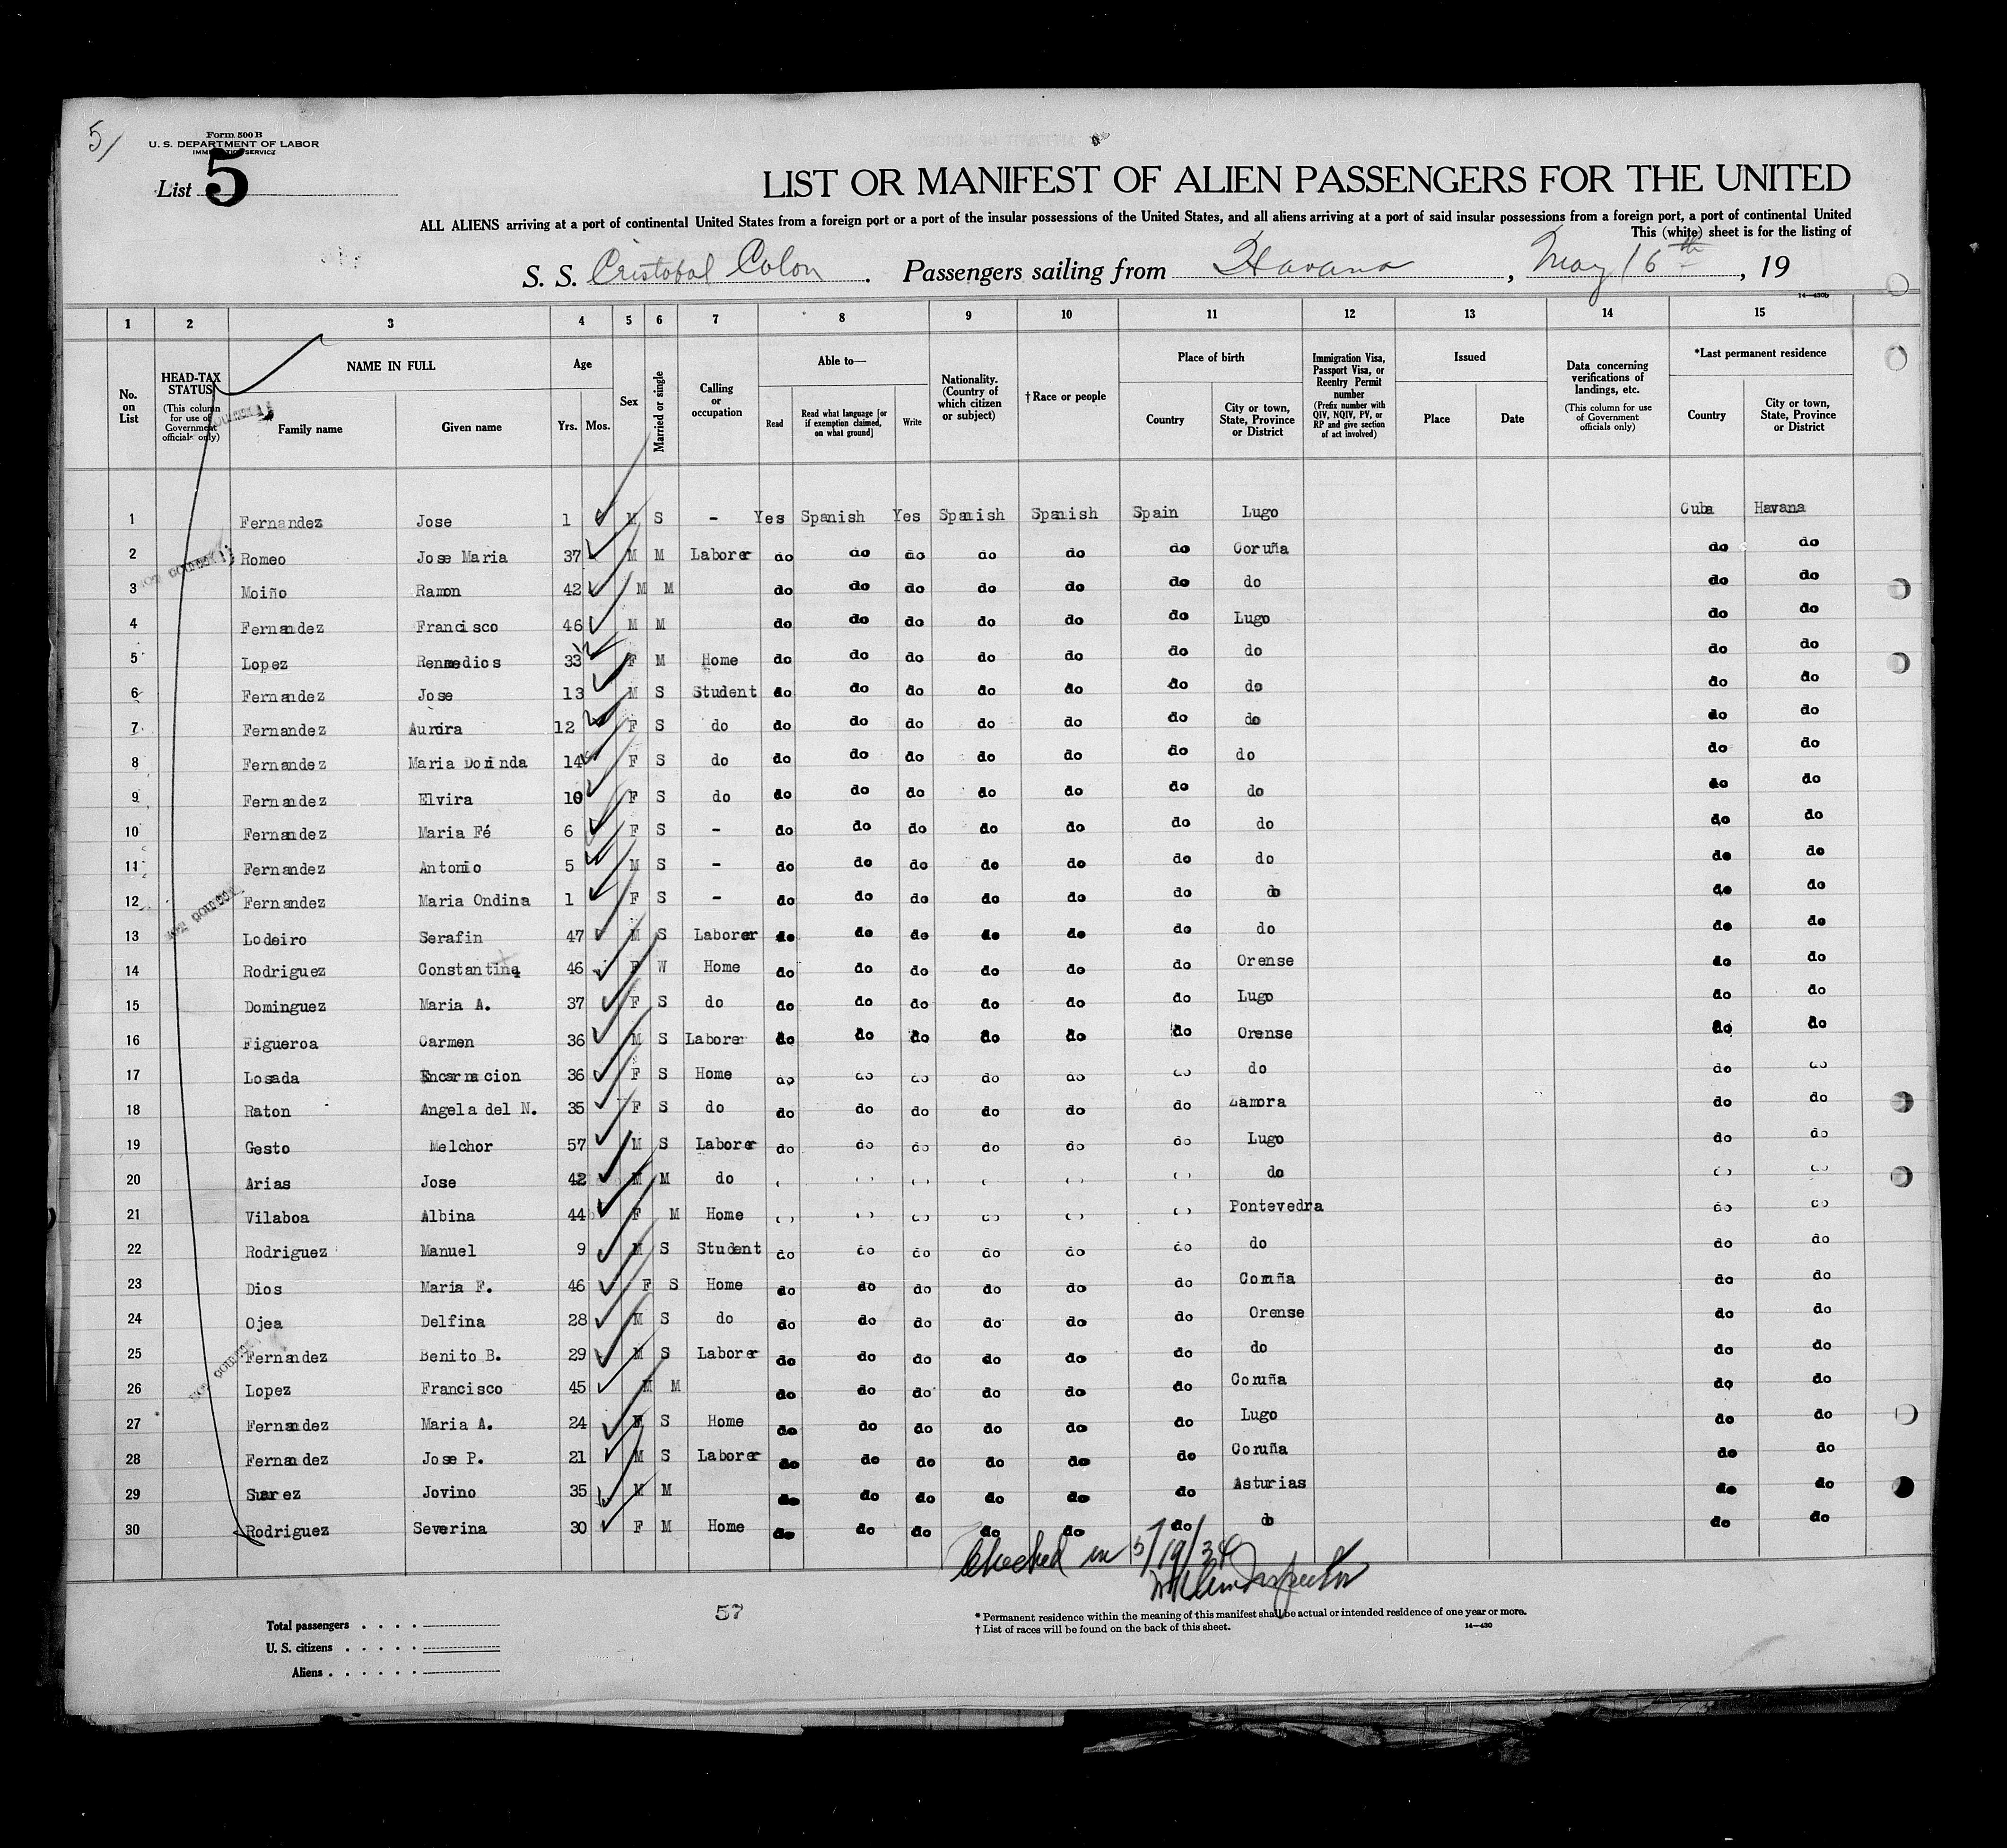 5/
Form 500 B
U. S. DEPARTMENT OF LABOR
IMMIGRATION SERVICE
List 5
LIST OR MANIFEST OF ALIEN PASSENGERS FOR THE UNITED
ALL ALIENS arriving at a port of continental United States from a foreign port or a port of the insular possessions of the United States, and all aliens arriving at a port of said insular possessions from a foreign port, a port of continental United
This (white) sheet is for the listing of
S. S. Cristobal Colon. Passengers sailing from Havana, May 16th, 19
14—430b
1 2 3 4 5 6 7 8 9 10 11 12 13 14 15
No. on List
HEAD-TAX STATUS (This column for use of Government officials only)
NAME IN FULL
Family name Given name
Age
Yrs. Mos.
Sex
Married or single
Calling or occupation
Able to—
Read Read what language [or if exemption claimed, on what ground] Write
Nationality. (Country of which citizen or subject)
† Race or people
Place of birth
Country City or town, State, Province or District
Immigration Visa, Passport Visa, or Reentry Permit number (Prefix number with QIV, NQIV, PV, or RP and give section of act involved)
Issued
Place Date
Data concerning verifications of landings, etc. (This column for use of Government officials only)
*Last permanent residence
Country City or town, State, Province or District
1 Fernandez Jose 1 M S - Yes Spanish Yes Spanish Spanish Spain Lugo Cuba Havana
2 Romeo Jose Maria 37 M M Laborer do do do do do do Coruña do do
3 Moiño Ramon 42 M M do do do do do do do do do
4 Fernandez Francisco 46 M M do do do do do do Lugo do do
5 Lopez Remedios 33 F M Home do do do do do do do do do
6 Fernandez Jose 13 M S Student do do do do do do do do do
7 Fernandez Aurora 12 F S do do do do do do do do do do
8 Fernandez Maria Dorinda 14 F S do do do do do do do do do do
9 Fernandez Elvira 10 F S do do do do do do do do do do
10 Fernandez Maria Fé 6 F S - do do do do do do do do do
11 Fernandez Antonio 5 M S - do do do do do do do do do
12 Fernandez Maria Ondina 1 F S - do do do do do do do do do
13 Lodeiro Serafin 47 M S Laborer do do do do do do do do do
14 Rodriguez Constantina 46 F W Home do do do do do do Orense do do
15 Dominguez Maria A. 37 F S do do do do do do do Lugo do do
16 Figueroa Carmen 36 M S Laborer do do do do do do Orense do do
17 Losada Encarnacion 36 F S Home do do do do do do do do do
18 Raton Angela del N. 35 F S do do do do do do do Zamora do do
19 Gesto Melchor 57 M S Laborer do do do do do do Lugo do do
20 Arias Jose 42 M M do do do do do do do do do do
21 Vilaboa Albina 44 F M Home do do do do do do Pontevedra do do
22 Rodriguez Manuel 9 M S Student do do do do do do do do do
23 Dios Maria F. 46 F S Home do do do do do do Coruña do do
24 Ojea Delfina 28 M S do do do do do do do Orense do do
25 Fernandez Benito B. 29 M S Laborer do do do do do do do do do
26 Lopez Francisco 45 M M do do do do do do Coruña do do
27 Fernandez Maria A. 24 F S Home do do do do do do Lugo do do
28 Fernandez Jose P. 21 M S Laborer do do do do do do Coruña do do
29 Suarez Jovino 35 M M do do do do do do Asturias do do
30 Rodriguez Severina 30 F M Home do do do do do do do do do
Checked in 5/19/34
Inspector
Total passengers
U. S. citizens
Aliens
57
* Permanent residence within the meaning of this manifest shall be actual or intended residence of one year or more.
† List of races will be found on the back of this sheet.
14—430